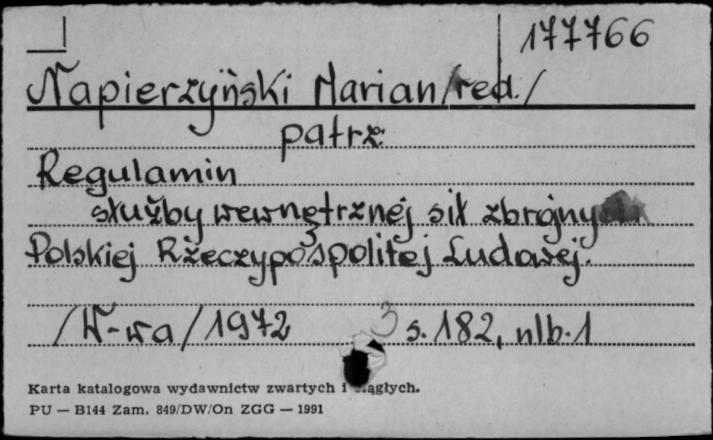 177766
Napierzyński Marian /red./
patrz:
Regulamin
służby wewnętrznej sił zbrojnych
Polskiej Rzeczypospolitej Ludowej.
/W-wa/ 1972 3 s. 182, nlb. 1
Karta katalogowa wydawnictw zwartych i ciągłych.
PU — B144 Zam. 849/DW/On ZGG — 1991